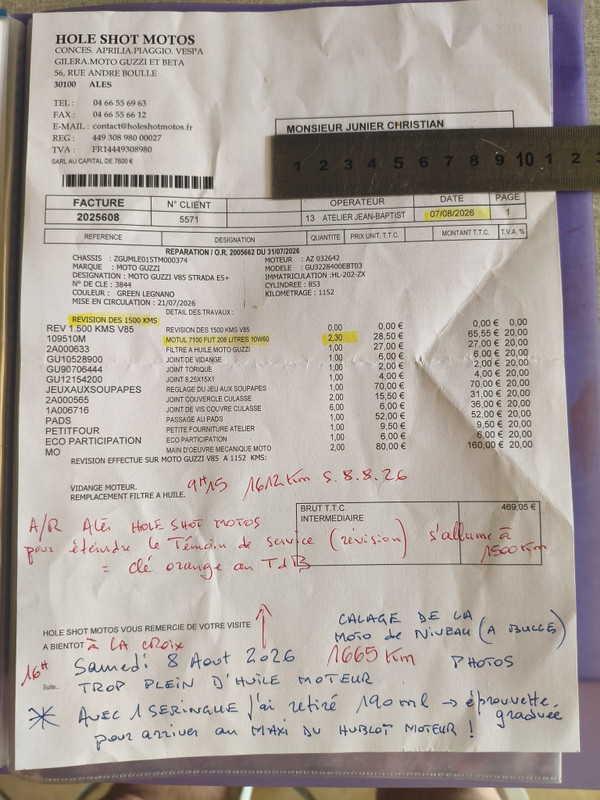 HOLE SHOT MOTOS
CONCES. APRILIA.PIAGGIO. VESPA
GILERA.MOTO GUZZI ET BETA
56, RUE ANDRE BOULLE
30100 ALES
TEL : 04 66 55 69 63
FAX : 04 66 55 66 12
E-MAIL : contact@holeshotmotos.fr
REG : 449 308 980 00027
TVA : FR14449308980
SARL AU CAPITAL DE 7600 €
MONSIEUR JUNIER CHRISTIAN
1 2 3 4 5 6 7 8 9 10 1 2 3
FACTURE N° CLIENT OPERATEUR DATE PAGE
2025608 5571 13 ATELIER JEAN-BAPTIST 07/08/2026 1
REFERENCE DESIGNATION QUANTITE PRIX UNIT. T.T.C. MONTANT T.T.C. T.V.A. %
REPARATION / O.R. 2005662 DU 31/07/2026
CHASSIS : ZGUMLE015TM000374 MOTEUR : AZ 032642
MARQUE : MOTO GUZZI MODELE : GU3228400EBT03
DESIGNATION : MOTO GUZZI V85 STRADA E5+ IMMATRICULATION :HL-202-ZX
N° DE CLE : 3844 CYLINDREE : 853
COULEUR : GREEN LEGNANO KILOMETRAGE : 1152
MISE EN CIRCULATION : 21/07/2026
DETAIL DES TRAVAUX :
REVISION DES 1500 KMS
REV 1.500 KMS V85 REVISION DES 1500 KMS V85 0,00 0,00 € 0,00 € 20,00
109510M MOTUL 7100 FUT 208 LITRES 10W60 2,30 28,50 € 65,55 € 20,00
2A000633 FILTRE A HUILE MOTO GUZZI 1,00 27,00 € 27,00 € 20,00
GU10528900 JOINT DE VIDANGE 1,00 6,00 € 6,00 € 20,00
GU90706444 JOINT TORIQUE 1,00 2,00 € 2,00 € 20,00
GU12154200 JOINT 8,25X15X1 1,00 4,00 € 4,00 € 20,00
JEUXAUXSOUPAPES REGLAGE DU JEU AUX SOUPAPES 1,00 70,00 € 70,00 € 20,00
2A000565 JOINT COUVERCLE CULASSE 2,00 15,50 € 31,00 € 20,00
1A006716 JOINT DE VIS COUVRE CULASSE 6,00 6,00 € 36,00 € 20,00
PADS PASSAGE AU PADS 1,00 52,00 € 52,00 € 20,00
PETITFOUR PETITE FOURNITURE ATELIER 1,00 9,50 € 9,50 € 20,00
ECO PARTICIPATION ECO PARTICIPATION 1,00 6,00 € 6,00 € 20,00
MO MAIN D'OEUVRE MECANIQUE MOTO 2,00 80,00 € 160,00 € 20,00
REVISION EFFECTUE SUR MOTO GUZZI V85 A 1152 KMS:
VIDANGE MOTEUR.
REMPLACEMENT FILTRE A HUILE.
9H15 1612 Km S. 8.8.26
BRUT T.T.C. 469,05 €
INTERMEDIAIRE
A/R Alès HOLE SHOT MOTOS
pour éteindre le Témoin de service (révision) s'allume à 1500 Km
= clé orange au TdB
HOLE SHOT MOTOS VOUS REMERCIE DE VOTRE VISITE
A BIENTOT à LA CROIX
CALAGE DE LA
MOTO de NIVEAU (A BULLES)
16H Samedi 8 Aout 2026 1665 Km PHOTOS
Suite...
TROP PLEIN D'HUILE MOTEUR
AVEC 1 SERINGUE j'ai retiré 190 ml → éprouvette graduée
pour arriver au MAXI DU HUBLOT MOTEUR !